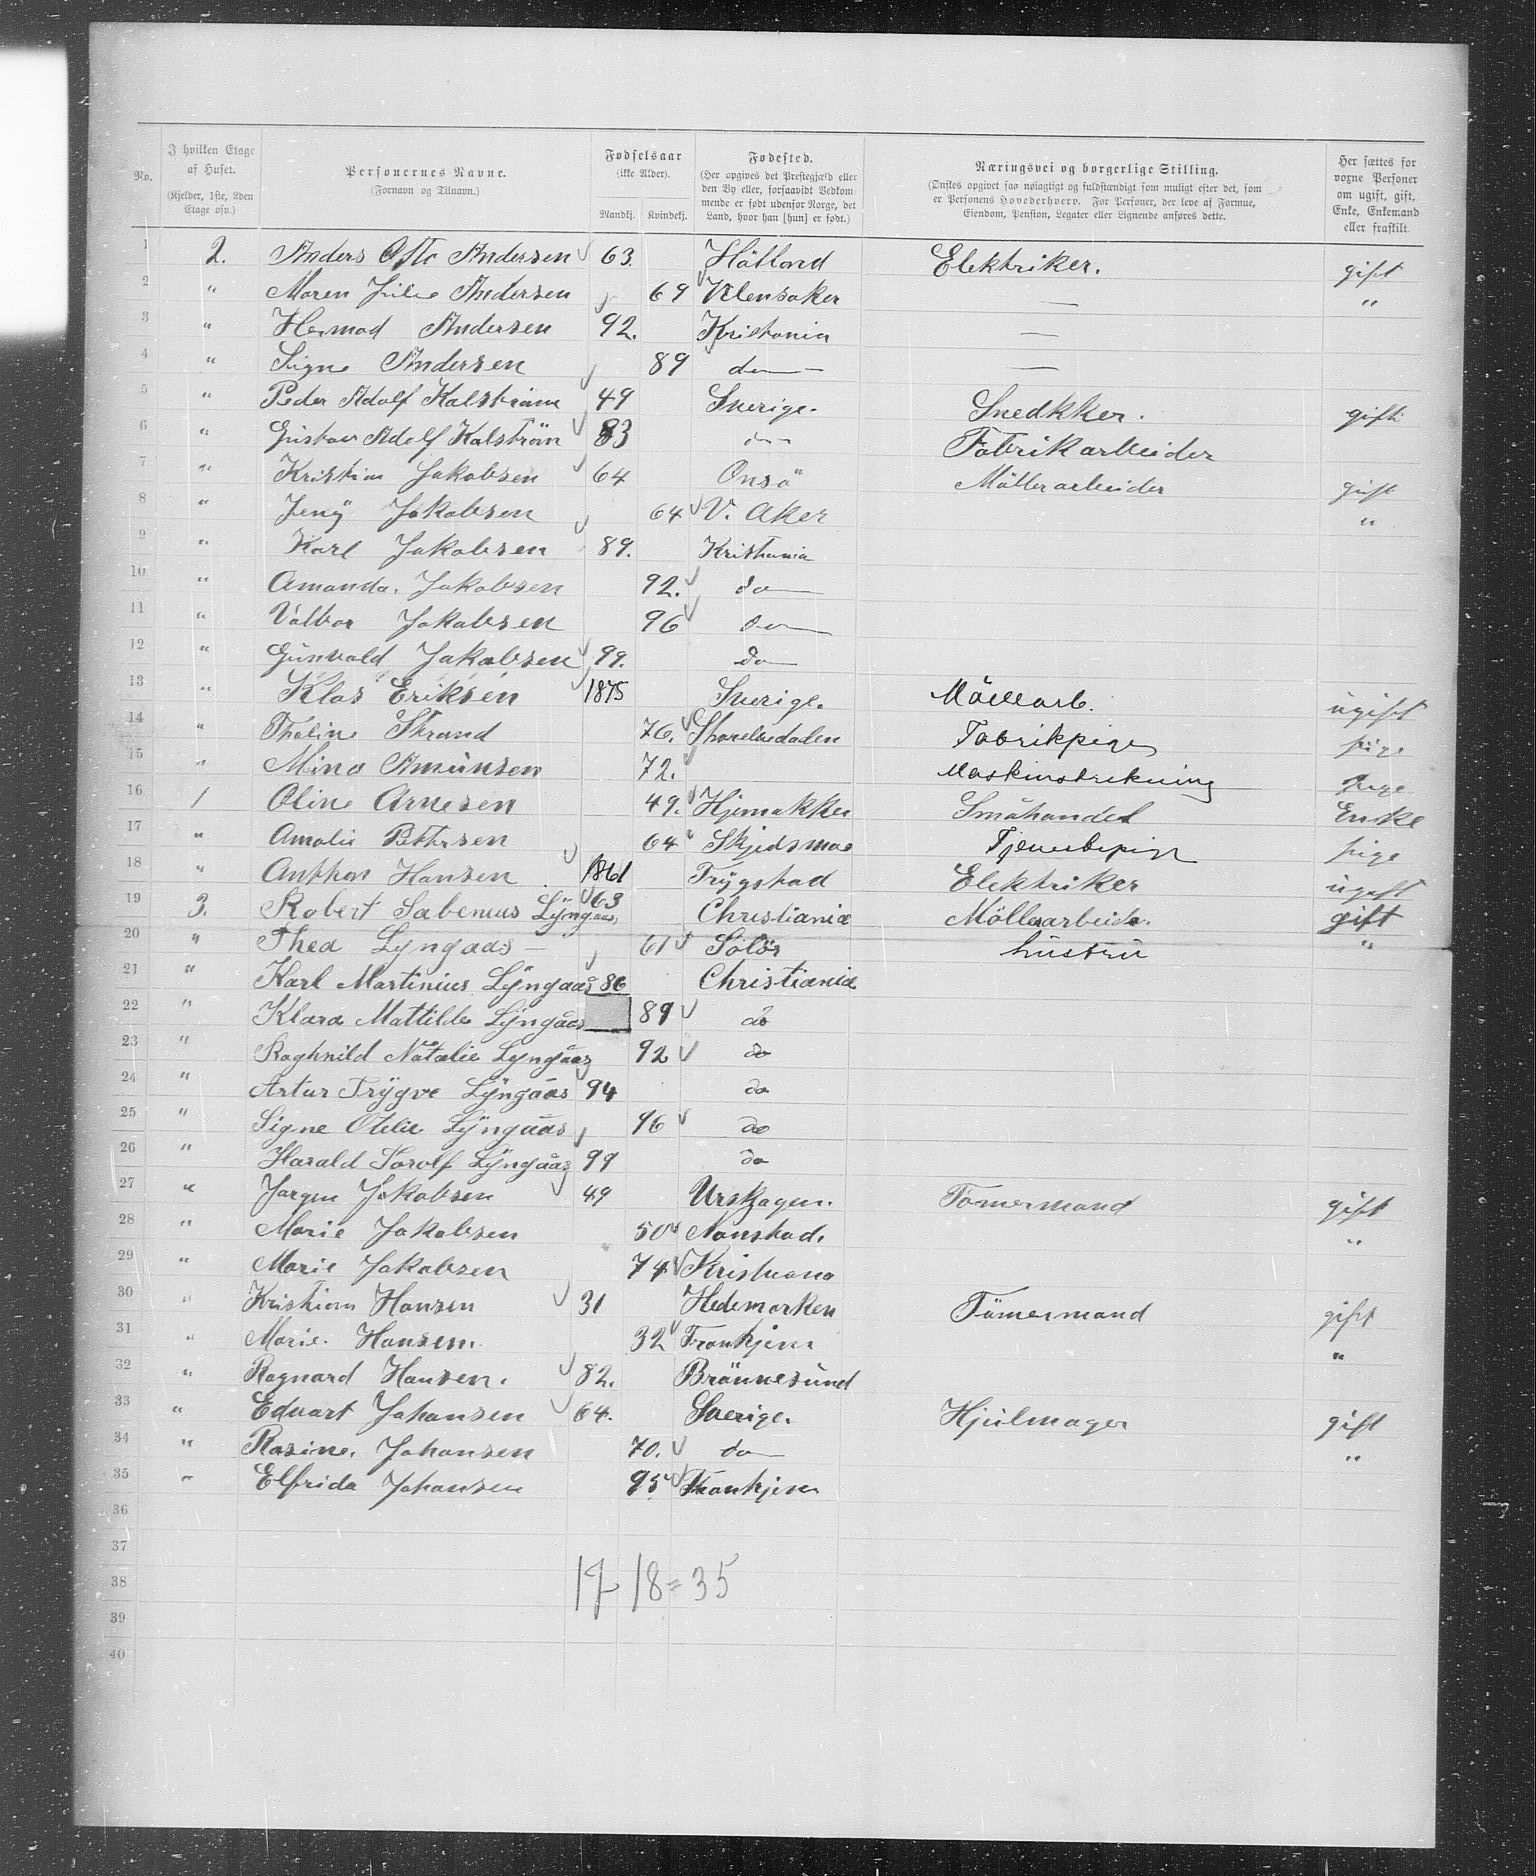 No.
I hvilken Etage af Huset.
(Kjelder, 1ste, 2den Etage osv.)
Personernes Navne.
(Fornavn og Tilnavn.)
Fødselsaar
(ikke Alder).
Mandkj. Kvindekj.
Fødested.
(Her opgives det Prestegjæld eller den By eller, forsaavidt Vedkommende er født udenfor Norge, det Land, hvor han [hun] er født.)
Næringsvei og borgerlige Stilling.
(Ønskes opgivet saa nøiagtigt og fuldstændigt som muligt efter det, som er Personens Hovederhverv. For Personer, der leve af Formue, Eiendom, Pension, Legater eller Lignende anføres dette.
Her sættes for voxne Personer om ugift, gift, Enke, Enkemand eller fraskilt.
1 2. Anders Otto Andersen 63. Hötland Elektriker. gift
2 " Maren Julie Andersen 69 Ullensaker — "
3 " Hermod Andersen 92. Kristania —
4 " Signe Andersen 89 do —
5 " Peder Adolf Kalström 49 Sverige. Snedkker. gift
6 " Gustav Adolf Kalström 83 do Fabrikarbeider
7 " Kristian Jakobsen 64 Onsö Möllerarbeider gift
8 " Jeny Jakobsen 64 V. Aker "
9 " Karl Jakobsen 89. Kristiania
10 " Amanda. Jakobsen 92. do
11 " Valbor Jakobsen 96 do
12 " Gunvald Jakobsen 99. do
13 " Klas Eriksen 1875 Sverige. Möllearb. ugift
14 " Thaline Strand 76. Fabrikpige pige
15 " Mina Amunsen 72. Maskinstrikning pige
16 1 Oline Arnesen 49. Småhandel Enke
17 " Amalie Pettersen 64 Skjedsmo Tjenestepige pige
18 " Anthon Hansen 1861 Trygstad Elektriker ugift
19 3. Robert Sabenius Lyngaas, 63 Christiania Möllearbeide. gift
20 " Thea Lyngaas — 61 Solör hustru "
21 " Karl Martinius Lyngaas 86 Christiania
22 " Klara Mattilde Lyngaas 89 do
23 " Raghnild Natalie Lyngaas 92 do
24 " Artur Trygve Lyngaas 94 do
25 " Signe Otelie Lyngaas 96 do
26 " Harald Torolf Lyngaas 99 do
27 " Jørgen Jakobsen 49 Urskagen. Tømermand gift
28 " Marie Jakobsen 50 Nanstad. "
29 " Marie Jakobsen 74 Kristiana
30 " Kristian Hansen 31 Hedemarken Tömermand gift
31 " Marie. Hansen. 32 Tronhjem "
32 " Ragnard Hansen. 82. Brönnesund
33 " Edvart Johansen 64. Sverige. Hjulmager gift
34 " Rasine. Johansen 70. do "
35 " Elfrida Johansen 95 Tronhjem
36
37
38 17 18 = 35
39
40